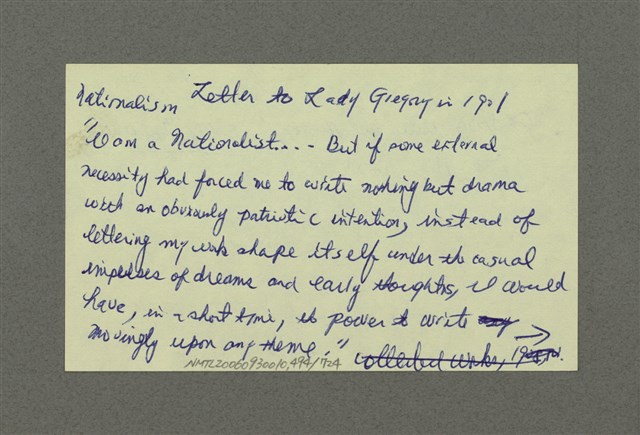 Nationalism Letter to Lady Gregory in 1901
"I am a Nationalist.... But if some external
necessity had forced me to write nothing but drama
with an obviously patriotic intention, instead of
lettering my work shape itself under the casual
impulses of dreams and early thoughts, I would
have, in a short time, the power to write any
movingly upon any theme." collected works, →
NMTL20060930010,494/724